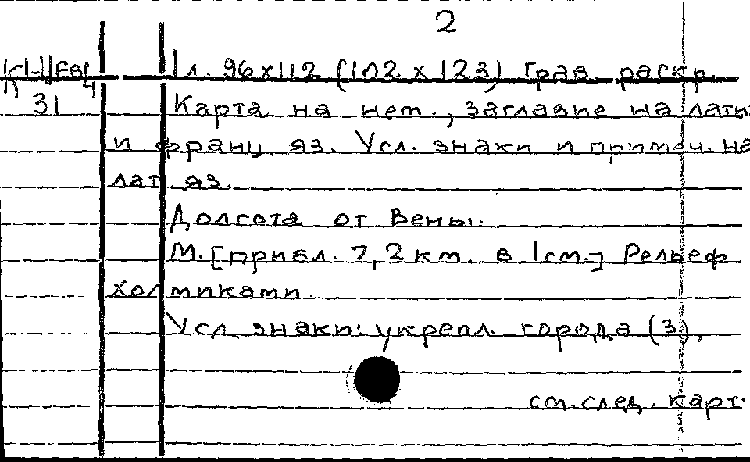 2
1л. 96х112 (102 х 123) Грав. раскр.
31 Карта на нем., заглавие на латы
и франц яз. Усл. знаки и примеч. на
лат яз.
Долгота от Вены.
М. [прибл. 7,2 км. в 1см.] Рельеф
холмиками.
Усл знаки: укрепл. города (3),
см. след. карт.